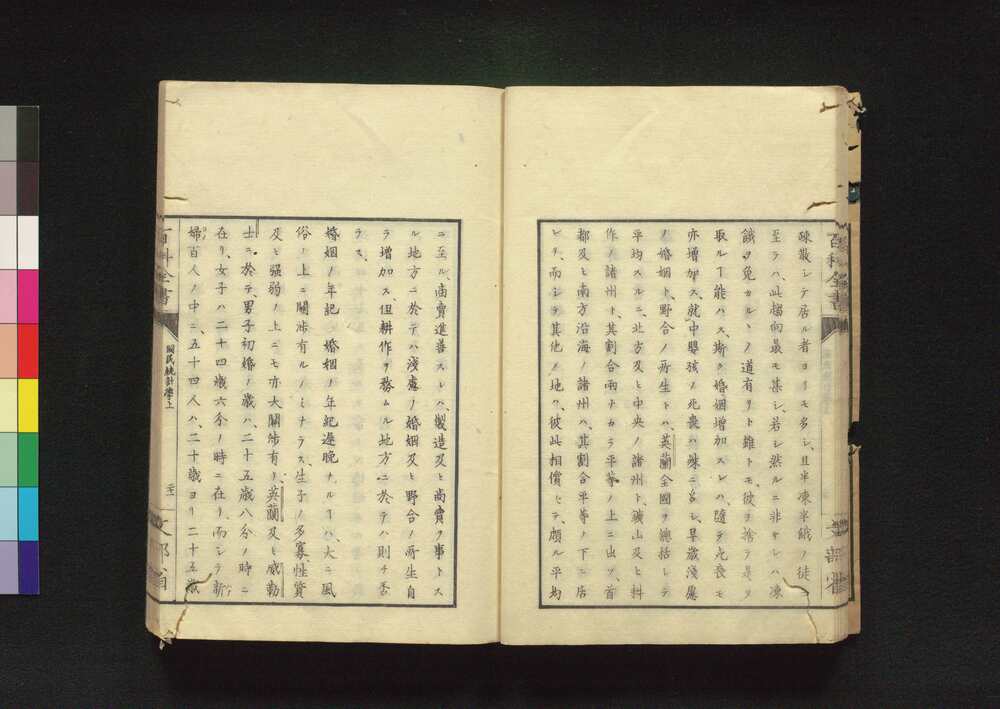 疎散シテ居ル者ヨリモ多シ、且半凍半餓ノ徒ニ
至ラハ、此趨向最モ甚シ、若シ然ルニ非サレハ凍
餓ヲ免カルヽノ道有リト雖トモ、彼ヲ捨テ是ヲ
取ルヿ能ハス、斯ク婚姻増加スレハ、隨テ死喪モ
亦増加ス、就中嬰孩ノ死喪ハ殊ニ多シ、早歳淺慮
ノ婚姻ト、野合ノ所生トハ、英蘭全國ヲ總括シテ
平均スルニ、北方及ヒ中央ノ諸州ト、礦山及ヒ耕
作ノ諸州ト、其割合兩ナカラ平等ノ上ニ出ツ、首
都及ヒ南方沿海ノ諸州ハ、其割合平等ノ下ニ居
ヒタ、而シテ其他ノ地ハ、彼此相償ヒテ、頗ル平均
百科全書
ニ至ル、商賣進善スレハ、製造及ヒ商賣ヲ事トス
ル地方ニ於テハ淺慮ノ婚姻及ヒ野合ノ所生自
ラ増加ス、但耕作ヲ務ムル地方ニ於テハ則チ否
ラス、
婚姻ノ年記 婚姻ノ年紀遲晩ナルヿハ、大ニ風
俗ノ上ニ關渉有ルノミナラス、生子ノ多寡、性質
及ヒ强弱ノ上ニモ亦大關渉有リ、英蘭及ヒ威勒
士ニ於テ、男子初婚ノ歳ハ、二十五歳八分ノ時ニ
在リ、女子ハ二十四歳六分ノ時ニ在リ、而シテ新
婦百人ノ中ニ、五十四人ハ、二十歳ヨリ二十五歳
百科全書
國民統計學上
文部省